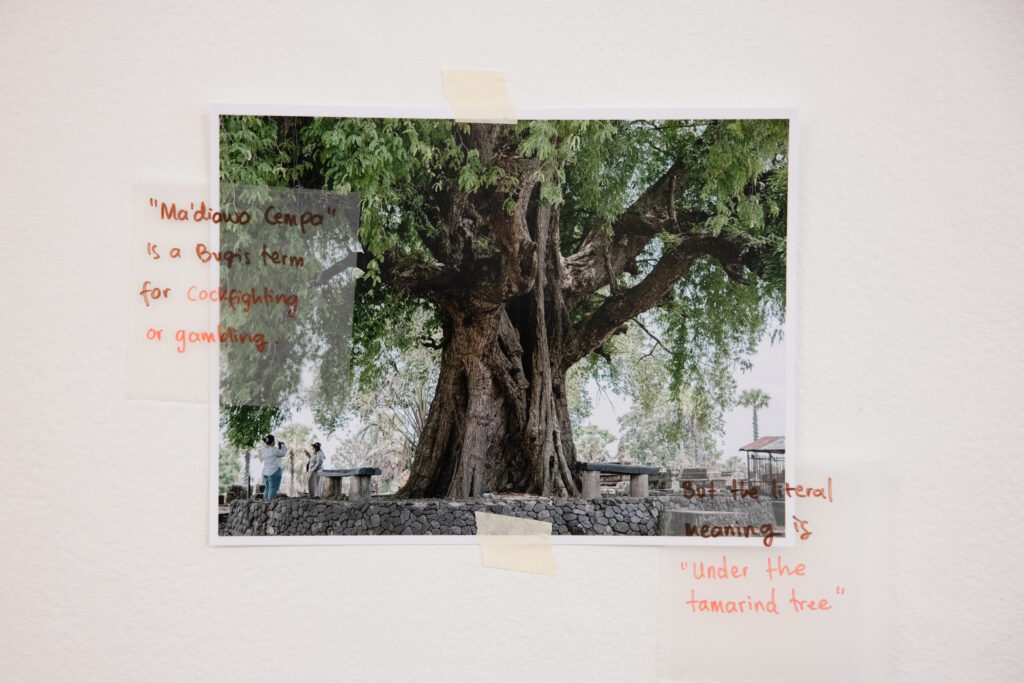 "Ma'diawa Cempa"
is a Bugis term
for Cockfighting
or gambling.
But the literal
meaning is
"Under the
tamarind tree"